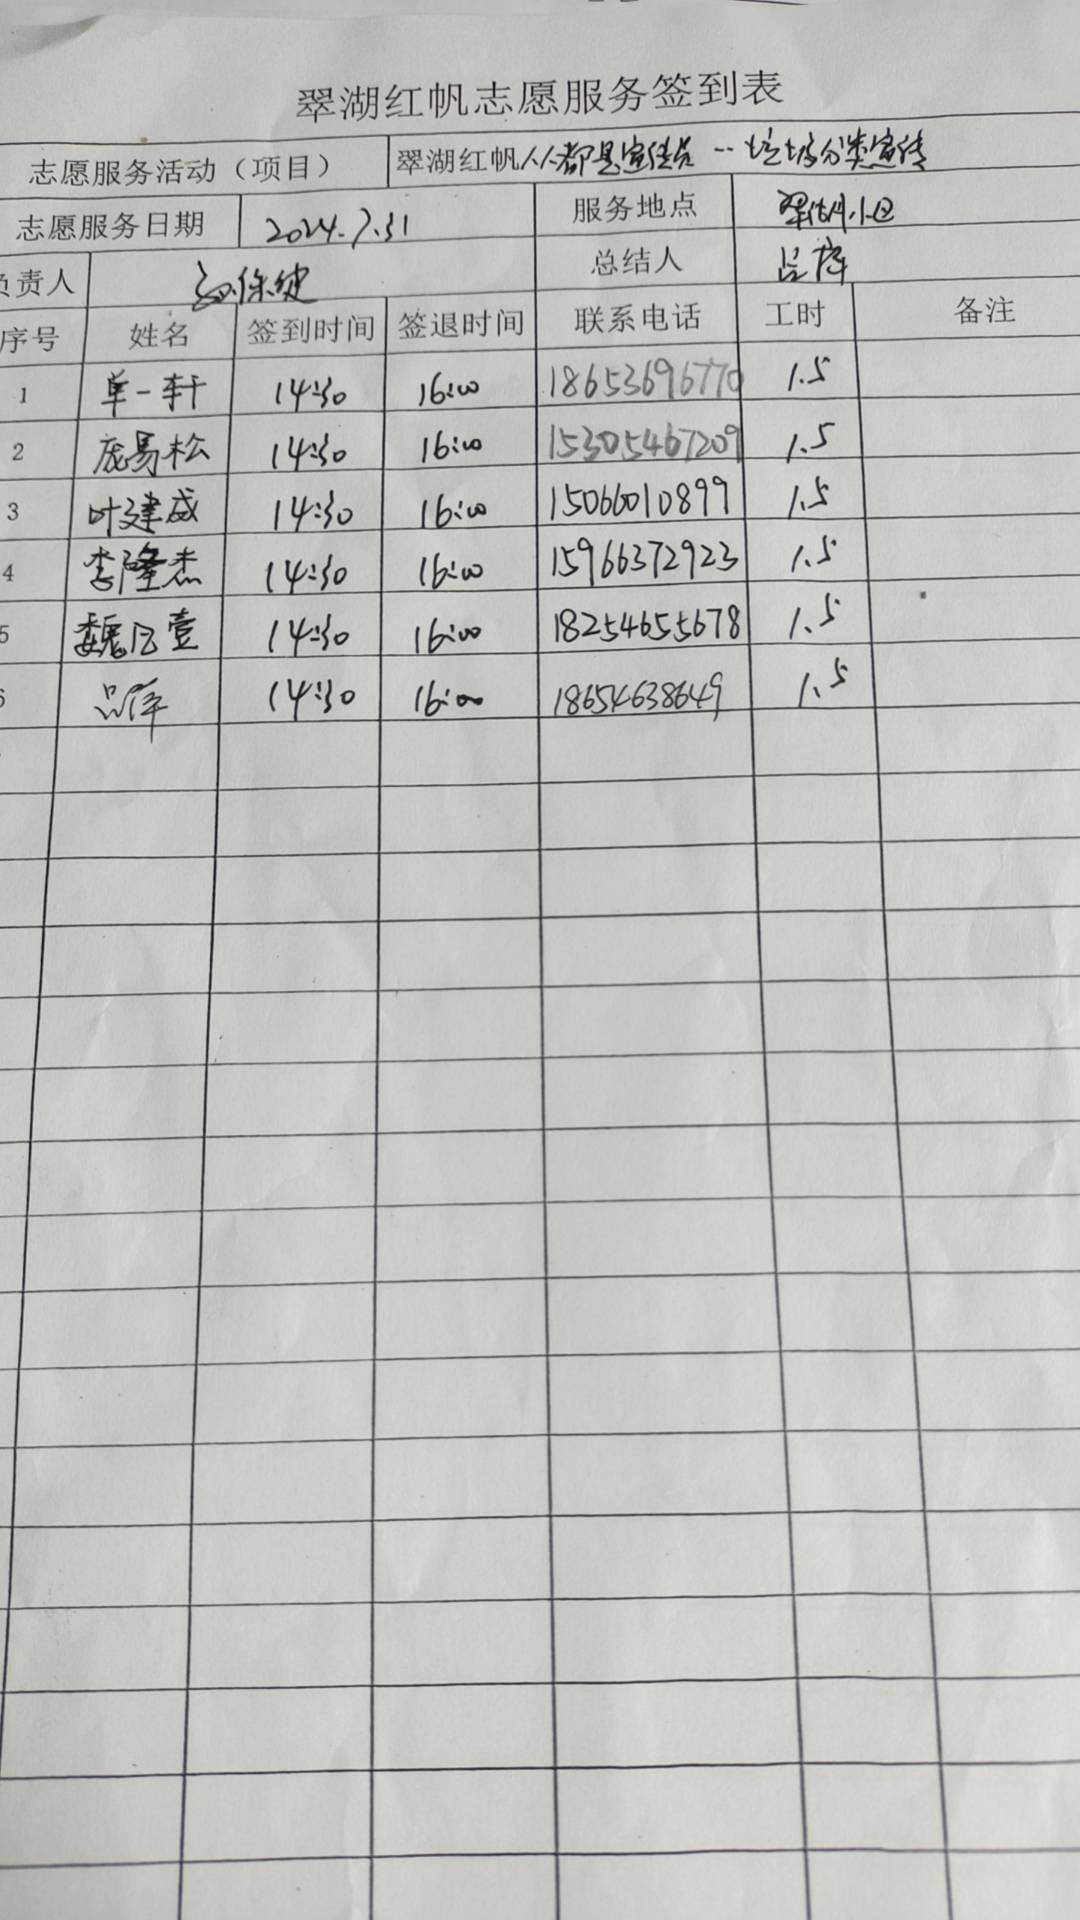 翠湖红帆志愿服务签到表
志愿服务活动（项目） 翠湖红帆人人都是宣传员 -- 垃圾分类宣传
志愿服务日期 2024.7.31 服务地点 翠湖小区
负责人 总结人
序号 姓名 签到时间 签退时间 联系电话 工时 备注
1 单一轩 14:30 16:00 18653696770 1.5
2 庞易松 14:30 16:00 15305467209 1.5
3 叶建成 14:30 16:00 15066010899 1.5
4 李隆杰 14:30 16:00 15966372923 1.5
5 14:30 16:00 18254655678 1.5
6 14:30 16:00 18654638649 1.5